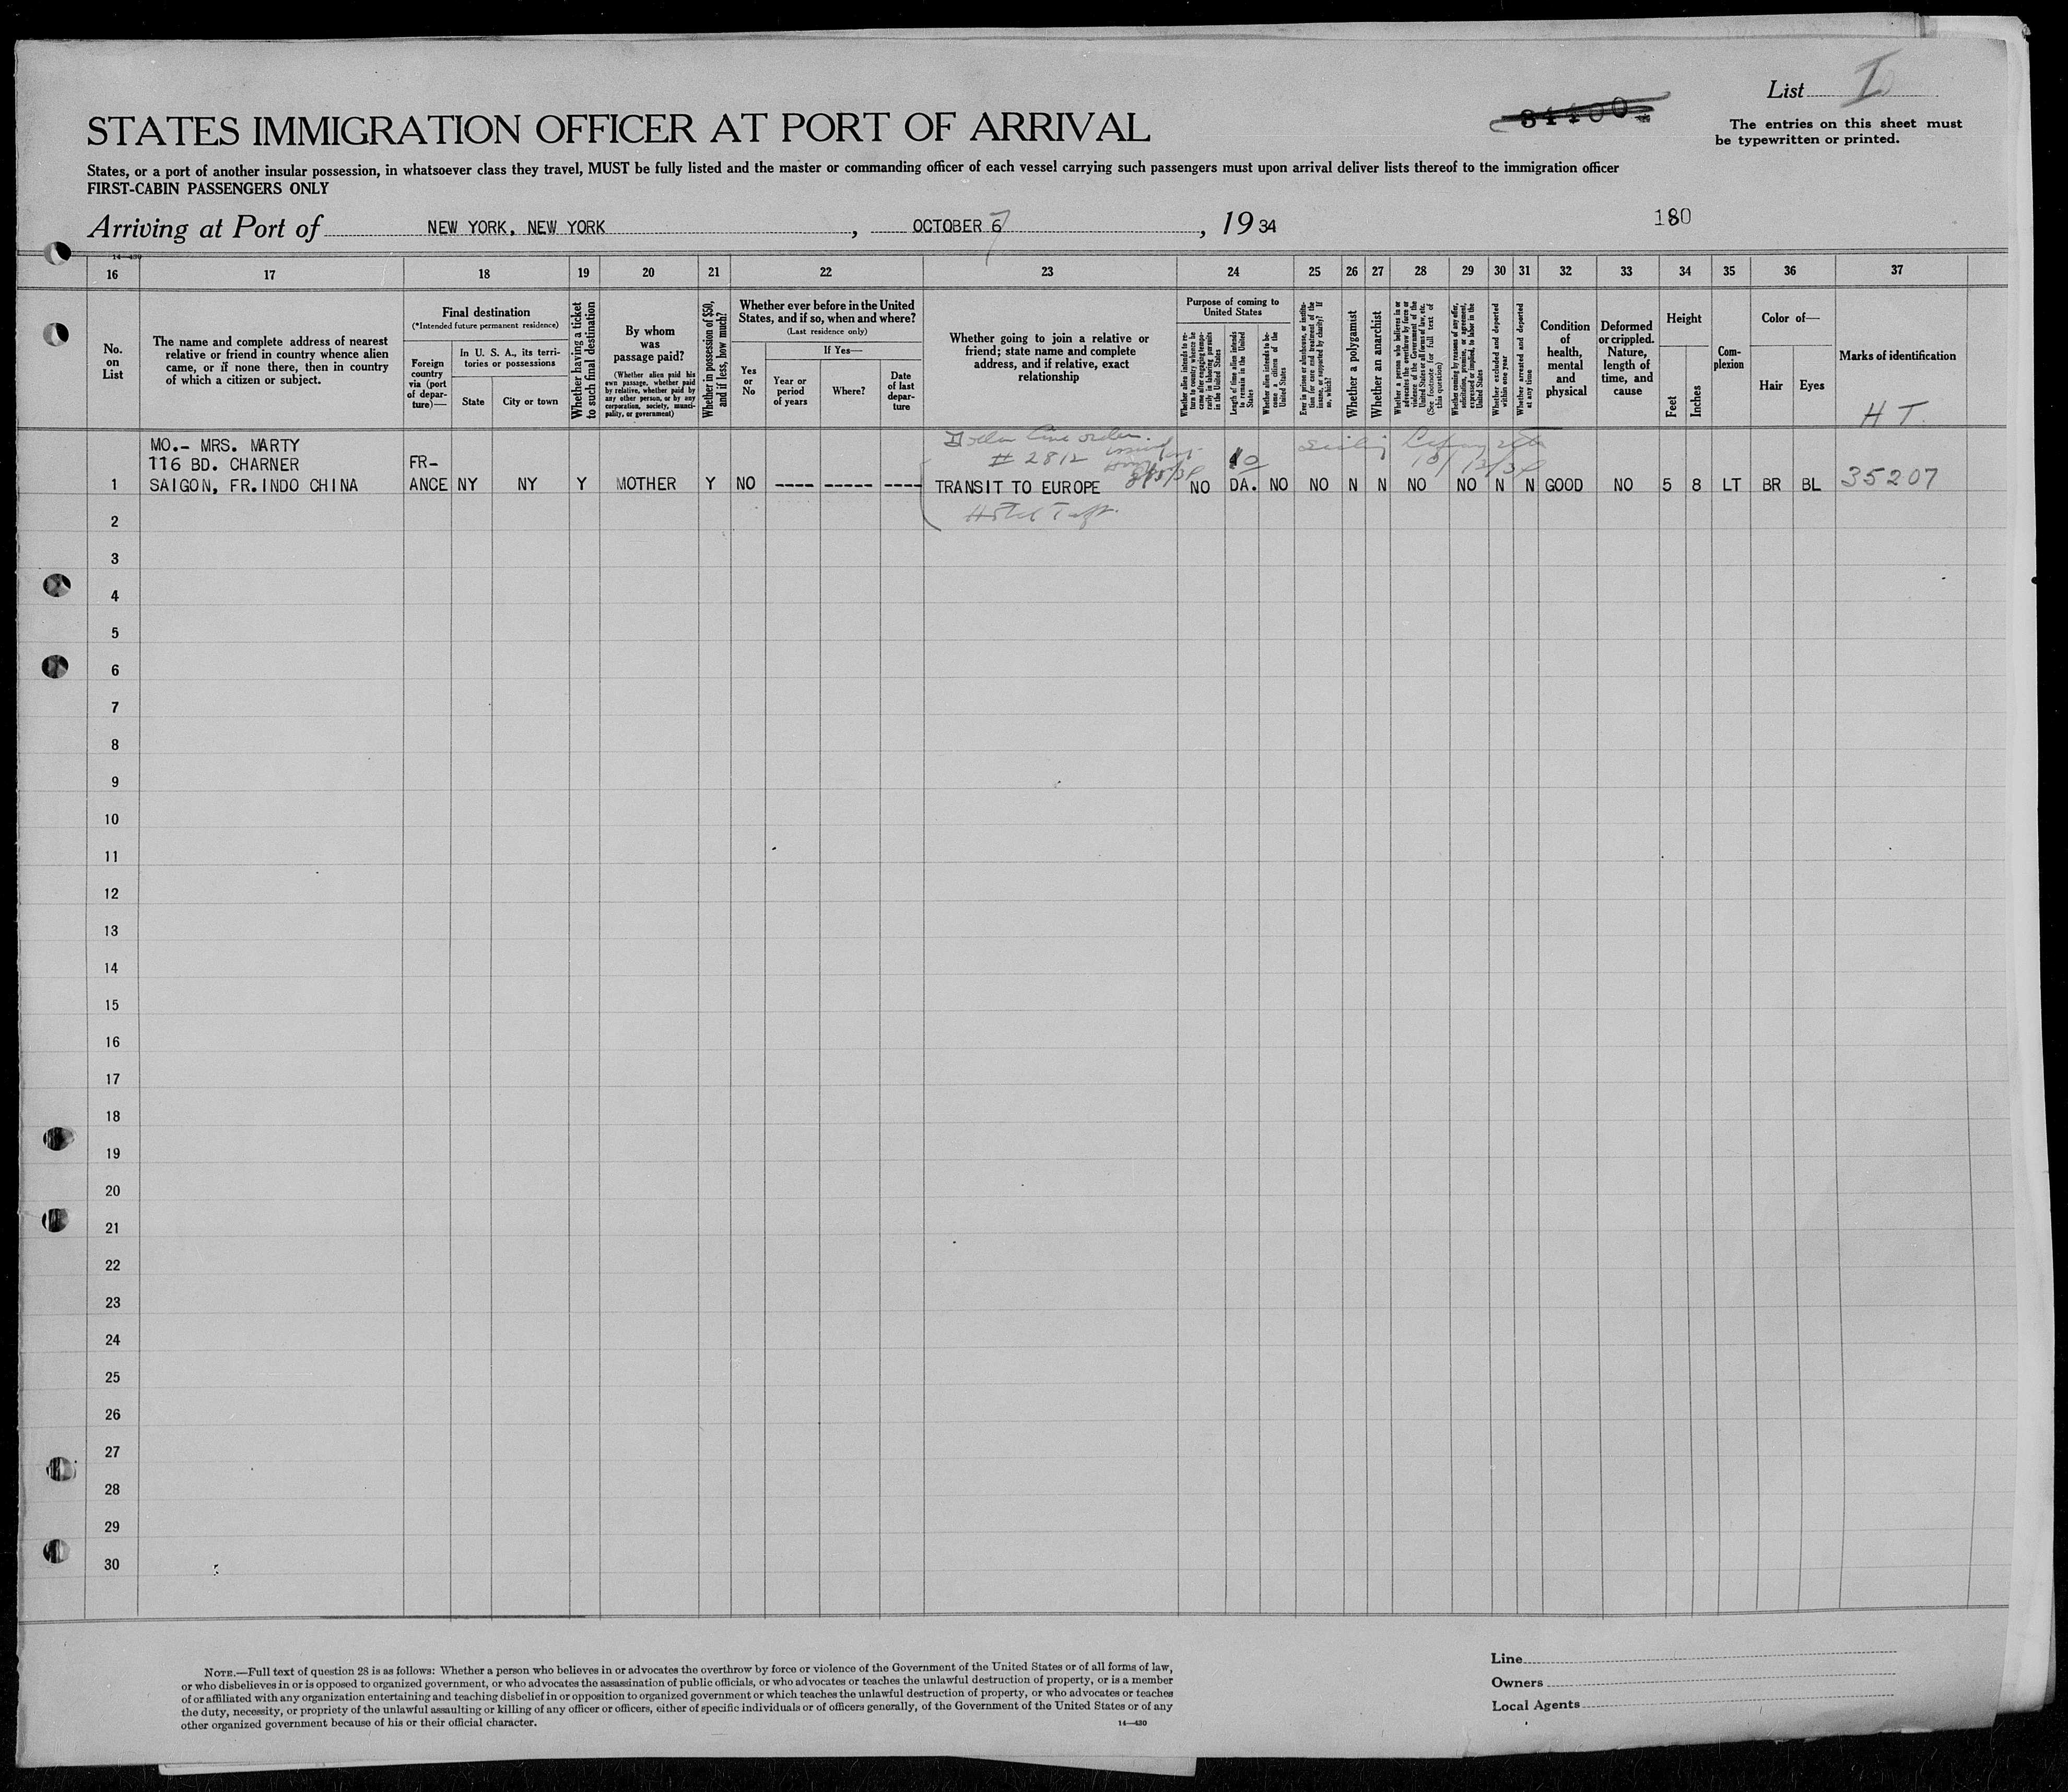 List I
84400
The entries on this sheet must
be typewritten or printed.
STATES IMMIGRATION OFFICER AT PORT OF ARRIVAL
States, or a port of another insular possession, in whatsoever class they travel, MUST be fully listed and the master or commanding officer of each vessel carrying such passengers must upon arrival deliver lists thereof to the immigration officer
FIRST-CABIN PASSENGERS ONLY
Arriving at Port of NEW YORK, NEW YORK, OCTOBER 6 7, 1934
180
14—430
16 17 18 19 20 21 22 23 24 25 26 27 28 29 30 31 32 33 34 35 36 37
No.
on
List
The name and complete address of nearest
relative or friend in country whence alien
came, or if none there, then in country
of which a citizen or subject.
Final destination
(*Intended future permanent residence)
Foreign
country
via (port
of depar-
ture)—
In U. S. A., its terri-
tories or possessions
State
City or town
Whether having a ticket
to such final destination
By whom
was
passage paid?
(Whether alien paid his
own passage, whether paid
by relative, whether paid by
any other person, or by any
corporation, society, munici-
pality, or government)
Whether in possession of $50,
and if less, how much?
Whether ever before in the United
States, and if so, when and where?
(Last residence only)
Yes
or
No
If Yes—
Year or
period
of years
Where?
Date
of last
depar-
ture
Whether going to join a relative or
friend; state name and complete
address, and if relative, exact
relationship
Purpose of coming to
United States
Whether alien intends to re-
turn to country whence he
came after engaging tempo-
rarily in laboring pursuits
in the United States
Length of time alien intends
to remain in the United
States
Whether alien intends to be-
come a citizen of the
United States
Ever in prison or almshouse, or institu-
tion for care and treatment of the
insane, or supported by charity? If
so, which?
Whether a polygamist
Whether an anarchist
Whether a person who believes in or
advocates the overthrow by force or
violence of the Government of the
United States or all forms of law, etc.
(See footnote for full text of
this question)
Whether coming by reasons of any offer,
solicitation, promise, or agreement,
expressed or implied, to labor in the
United States
Whether excluded and deported
within one year
Whether arrested and deported
at any time
Condition
of
health,
mental
and
physical
Deformed
or crippled.
Nature,
length of
time, and
cause
Height
Feet
Inches
Com-
plexion
Color of—
Hair
Eyes
Marks of identification
H T.
MO.- MRS. MARTY
116 BD. CHARNER FR-
1 SAIGON, FR.INDO CHINA ANCE NY NY Y MOTHER Y NO ---- ----- ---- TRANSIT TO EUROPE NO DA. NO NO N N NO NO N N GOOD NO 5 8 LT BR BL 35207
Dollar Line order.
# 2812
10
10/13/34
Hotel Taft.
2
3
4
5
6
7
8
9
10
11
12
13
14
15
16
17
18
19
20
21
22
23
24
25
26
27
28
29
30
NOTE.—Full text of question 28 is as follows: Whether a person who believes in or advocates the overthrow by force or violence of the Government of the United States or of all forms of law,
or who disbelieves in or is opposed to organized government, or who advocates the assassination of public officials, or who advocates or teaches the unlawful destruction of property, or is a member
of or affiliated with any organization entertaining and teaching disbelief in or opposition to organized government or which teaches the unlawful destruction of property, or who advocates or teaches
the duty, necessity, or propriety of the unlawful assaulting or killing of any officer or officers, either of specific individuals or of officers generally, of the Government of the United States or of any
other organized government because of his or their official character.
14—430
Line
Owners
Local Agents